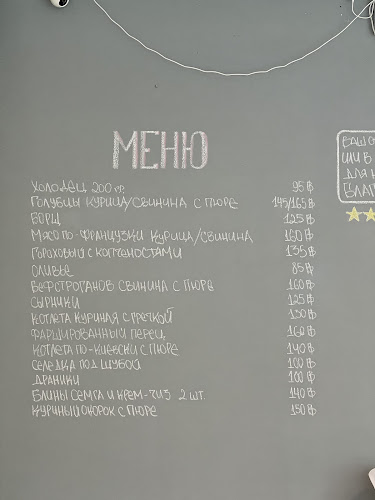 МЕНЮ
ХОЛОДЕЦ 200 гр. 95 ฿
ГОЛУБЦЫ КУРИЦА/СВИНИНА С ПЮРЕ 145/165 ฿
БОРЩ 125 ฿
МЯСО ПО-ФРАНЦУЗКИ КУРИЦА/СВИНИНА 160 ฿
ГОРОХОВЫЙ С КОПЧЕНОСТЯМИ 135 ฿
ОЛИВЬЕ 85 ฿
БЕФСТРОГАНОВ СВИНИНА С ПЮРЕ 160 ฿
СЫРНИКИ 125 ฿
КОТЛЕТА КУРИНАЯ С ГРЕЧКОЙ 130 ฿
ФАРШИРОВАННЫЙ ПЕРЕЦ 160 ฿
КОТЛЕТА ПО-КИЕВСКИ С ПЮРЕ 140 ฿
СЕЛЕДКА ПОД ШУБОЙ 100 ฿
ДРАНИКИ 100 ฿
БЛИНЫ СЕМГА И КРЕМ-ЧИЗ 2 ШТ. 140 ฿
КУРИНЫЙ ОКОРОК С ПЮРЕ 150 ฿
ДЛЯ